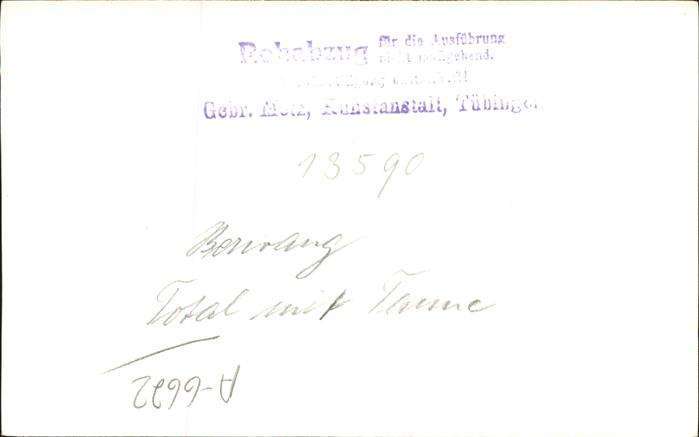 Rohabzug für die Ausführung
nicht maßgebend.
Gebr. Metz, Kunstanstalt, Tübingen
13590
Berwang
Total mit Tanne
A-6622